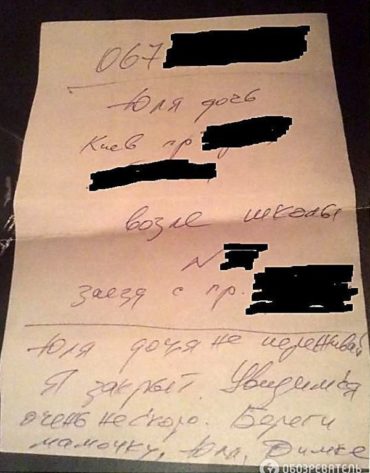 067
Юля дочь
Киев пр
возле школы
№
заезд с пр.
Юля доча не переживай
Я закрыт. Увидимся
очень не скоро. Береги
мамочку, Юля, Димке
ОБОЗРЕВАТЕЛЬ